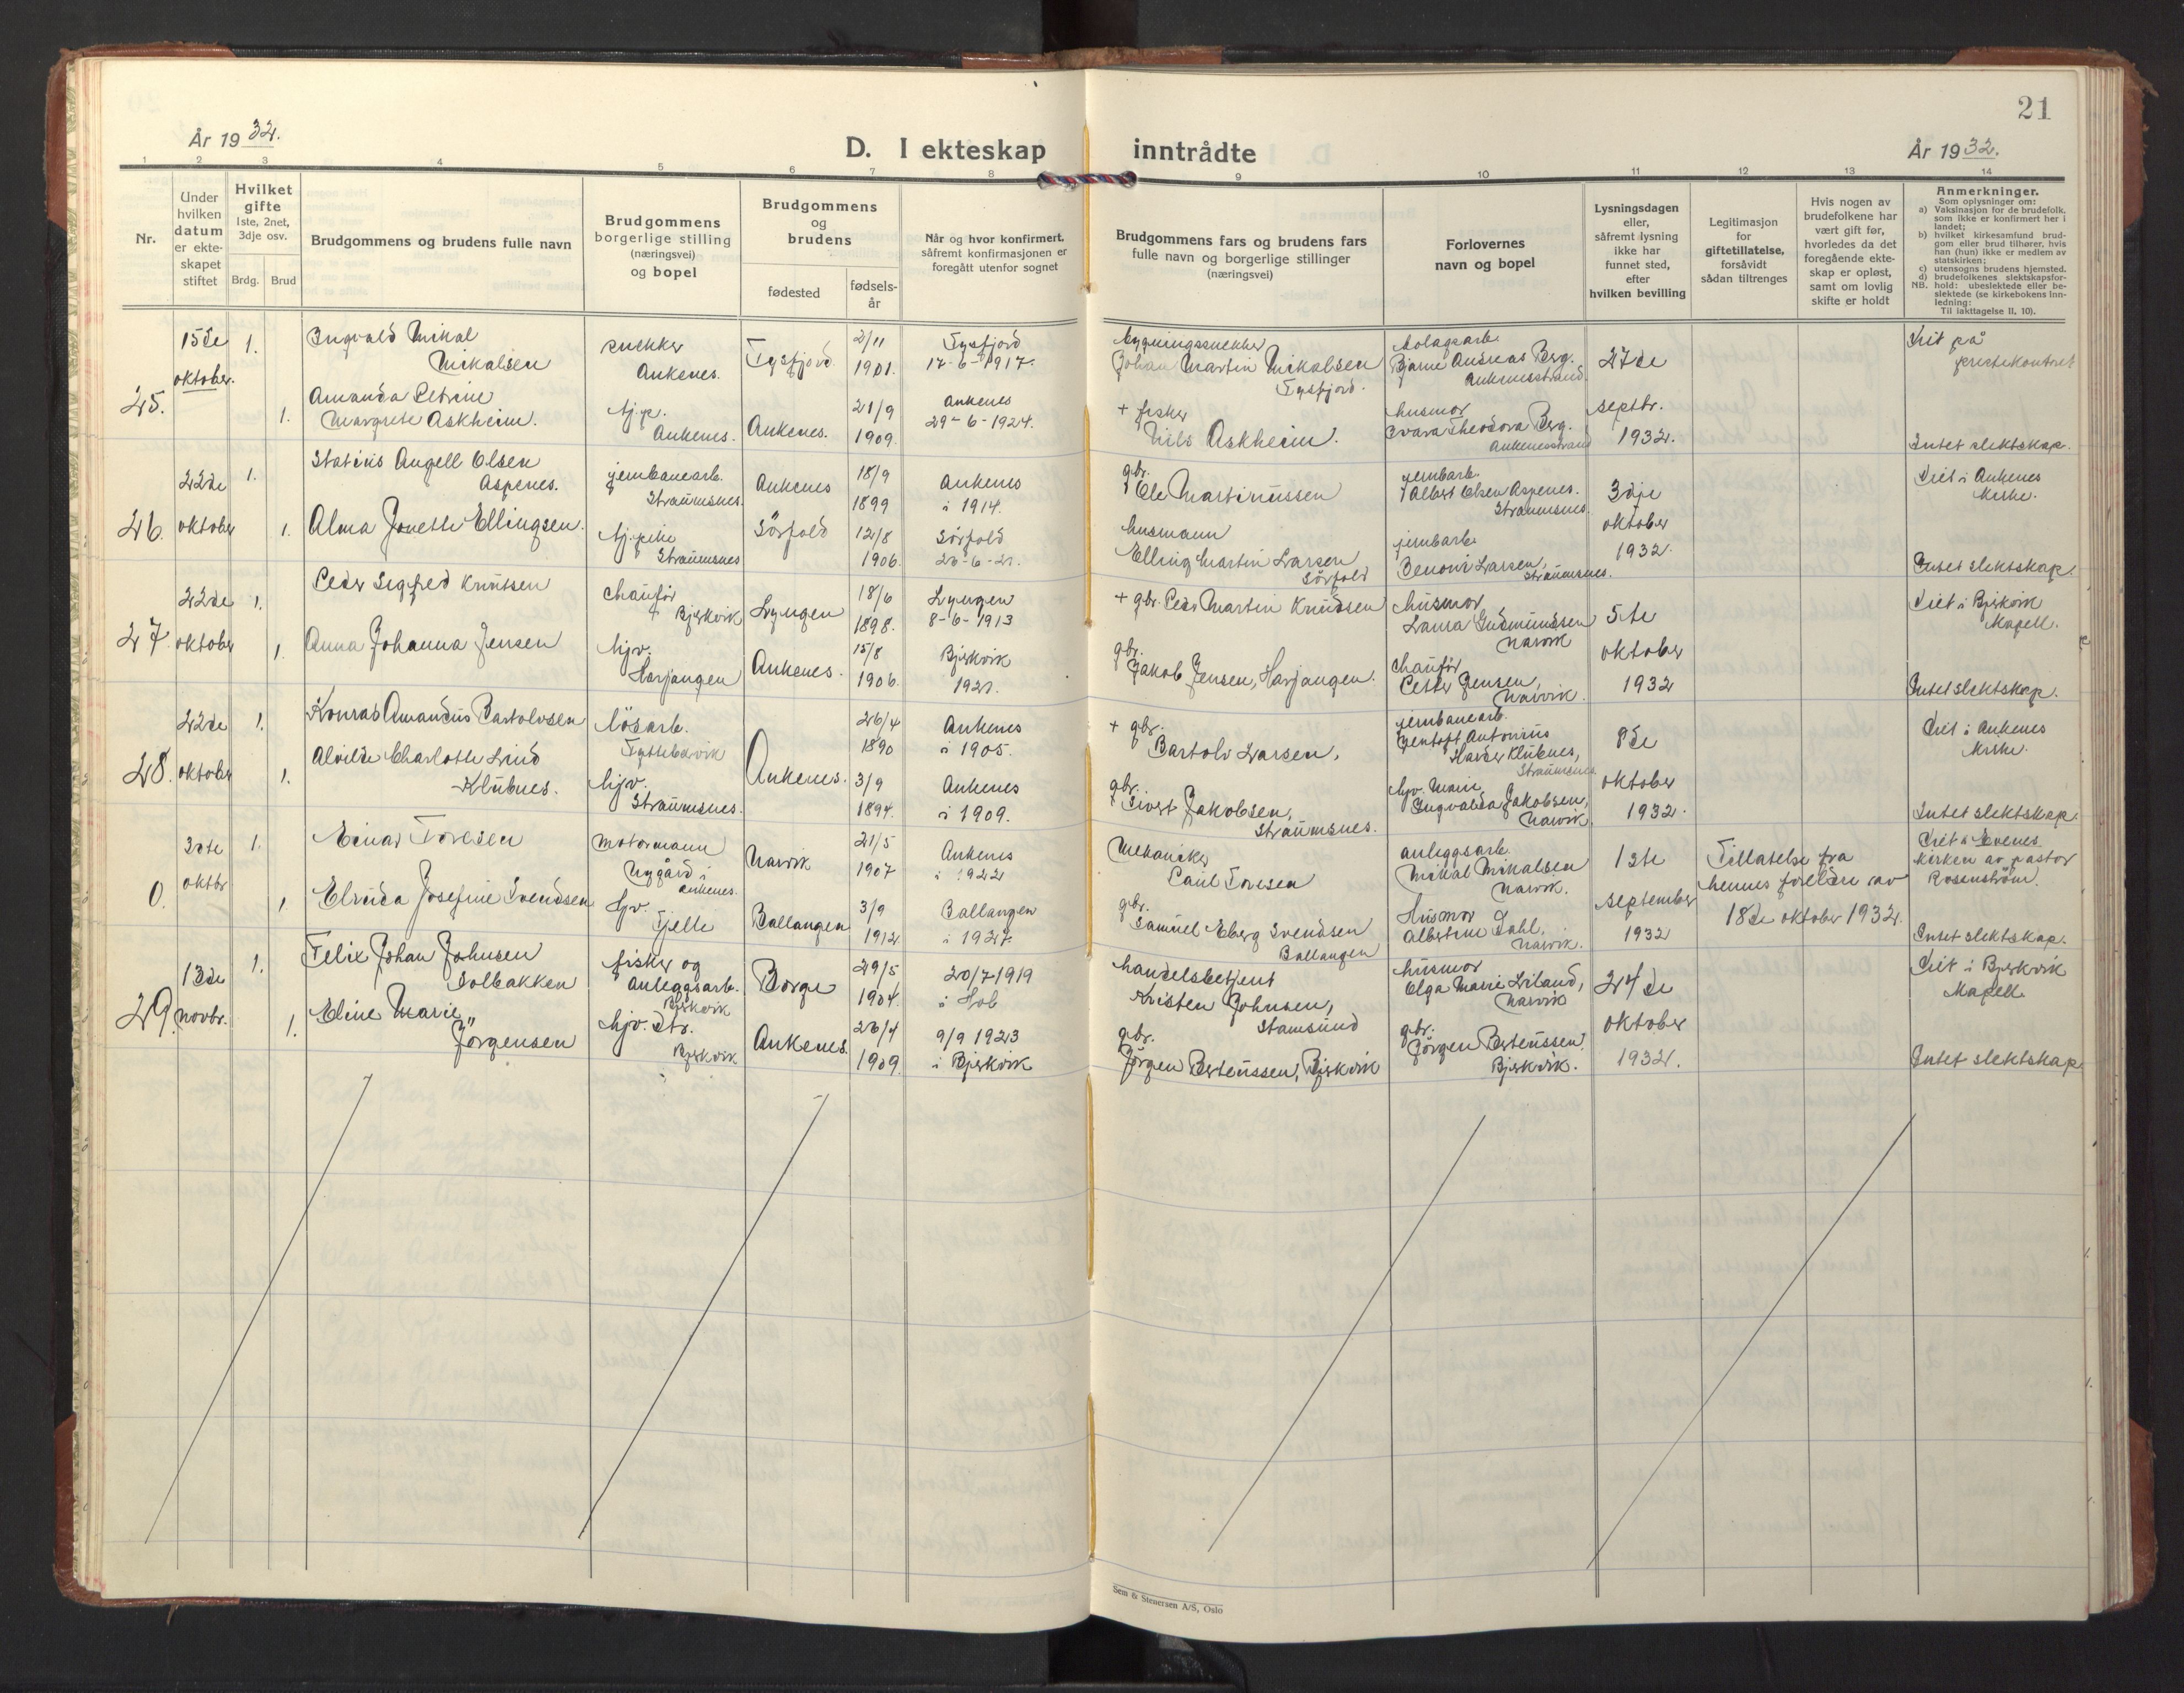 År 1932.
D. I ekteskap
1 2 3 4 5 6 7 8
Nr.
Under hvilken datum er ekteskapet stiftet
Hvilket gifte
1ste, 2net, 3dje osv.
Brdg. Brud
Brudgommens og brudens fulle navn
Brudgommens borgerlige stilling (næringsvei) og bopel
Brudgommens og brudens
fødested
fødselsår
Når og hvor konfirmert, såfremt konfirmasjonen er foregått utenfor sognet
25.
15de oktober.
1.
Ingvald Mikal
Mikalsen
snekker
Ankenes.
Tysfjord
2/11
1901.
Tysfjord
17-6-1917.
1.
Amanda Petrine
Margrete Askheim.
hj.p.
Ankenes.
Ankenes.
21/9
1909.
Ankenes
29-6-1924.
26.
22de oktober
1.
Statius Angell Olsen
Aspenes.
jernbanearb.
Straumsnes.
Ankenes
18/9
1899
Ankenes
i 1914.
1.
Alma Jonette Ellingsen.
hj.pike
Straumsnes
Sörfold
12/8
1906.
Sörfold
27.
22de oktober
1.
Peder Sigfred Knutsen
chauför
Bjerkvik
Lyngen
18/6
1898.
Lyngen
8-6-1913
1.
Anna Johanna Jensen
hjv.
Harjangen
Ankenes.
15/8
1906.
Bjerkvik
1921.
28.
22de oktober
1.
Konrad Amandus Bartolvsen
lösarb.
Tyttebærvik
26/4
1890
Ankenes
i 1905.
1.
Alvilde Charlotte Lind
Klubnes.
hjv.
Straumsnes.
Ankenes.
3/9
1894.
Ankenes
i 1909.
0.
30te oktbr
1.
Einar Toresen
motormann
Nygård i
Ankenes.
Narvik
21/5
1907
Ankenes
i 1922
1.
Elvida Josefine Svendsen
hjv.
Fjelle
Ballangen
3/9
1912
Ballangen
i 1927.
29.
13de novbr.
1.
Felix Johan Johnsen
Solbakken
fisker og
anleggsarb.
Bjerkvik
Borge
29/5
1904.
20/7 1919
i Hol
1.
Eline Marie
Jörgensen
hjv. dtr.
Bjerkvik
Ankenes.
26/4
1909.
9/9 1923
i Bjerkvik
21
inntrådte
År 1932.
9 10 11 12 13 14
Brudgommens fars og brudens fars fulle navn og borgerlige stillinger (næringsvei)
Forlovernes navn og bopel
Lysningsdagen eller, såfremt lysning ikke har funnet sted, efter hvilken bevilling
Legitimasjon for giftetillatelse, forsåvidt sådan tiltrenges
Hvis nogen av brudefolkene har vært gift før, hvorledes da det foregående ekteskap er opløst, samt om lovlig skifte er holdt
Anmerkninger.
Som oplysninger om:
a) Vaksinasjon for de brudefolk. som ikke er konfirmert her i landet;
b) hvilket kirkesamfund brudgom eller brud tilhører, hvis han (hun) ikke er medlem av statskirken;
c) utensogns brudens hjemsted.
d) brudefolkenes slektskapsforhold: ubeslektede eller beslektede (se kirkebokens Innledning:
NB. Til iakttagelse II, 10).
bygningssnekker
Johan Martin Mikalsen
Tysfjord.
bolagsarb.
Bjarne Andreas Berg.
Ankenesstrand
27de
septbr.
1932.
Viet på
prestekontoret
+ fisker
Nils Askheim.
husmor
Svara Theodora Berg.
Ankenesstrand
Intet slektskap.
gbr.
Ole Martinussen
jernbarb.
Albert Olsen Aspenes.
Straumsnes.
3dje
oktober
1932.
Viet i Ankenes
kirke.
husmann
Elling Martin Larsen
Sörfold
jernbarb.
Benoni Larsen,
Straumsnes.
Intet slektskap.
+ gbr. Peder Martin Knudsen
husmor
Laura Gudmundsen
Narvik
5te
oktober
1932
Viet i Bjerkvik
kapell.
gbr.
Jakob Jensen, Harjangen.
chauför
Petter Jensen,
Narvik.
Intet slektskap.
+ gbr.
Bartolv Larsen.
jernbanearb.
Jentoft Antonius
Harder Klubnes,
Straumsnes.
8de
oktober
1932.
Viet i Ankenes
kirke.
gbr.
Sivert Jakobsen,
Straumsnes.
hjv. Marie
Ingvalda Jakobsen,
Narvik
Intet slektskap.
Mekaniker
Paul Toresen
anleggsarb.
Mikal Mikalsen
Narvik.
12te
september
1932
Tillatelse fra
hennes foreldre av
18de oktober 1932.
Viet i Evenes
kirken av pastor
Rosenström.
gbr.
Samuel Eberg Svendsen
Ballangen
Husmor
Albertine Dahl.
Narvik.
Intet slektskap.
handelsbetjent
Kristen Johnsen,
Stamsund
husmor
Elga Marie Liland,
Narvik
24de
oktober
1932.
Viet i Bjerkvik
kapell
gbr.
Jörgen Berteussen, Bjerkvik
gbr.
Jörgen Berteussen.
Bjerkvik.
Intet slektskap
Sem & Stenersen A/S, Oslo